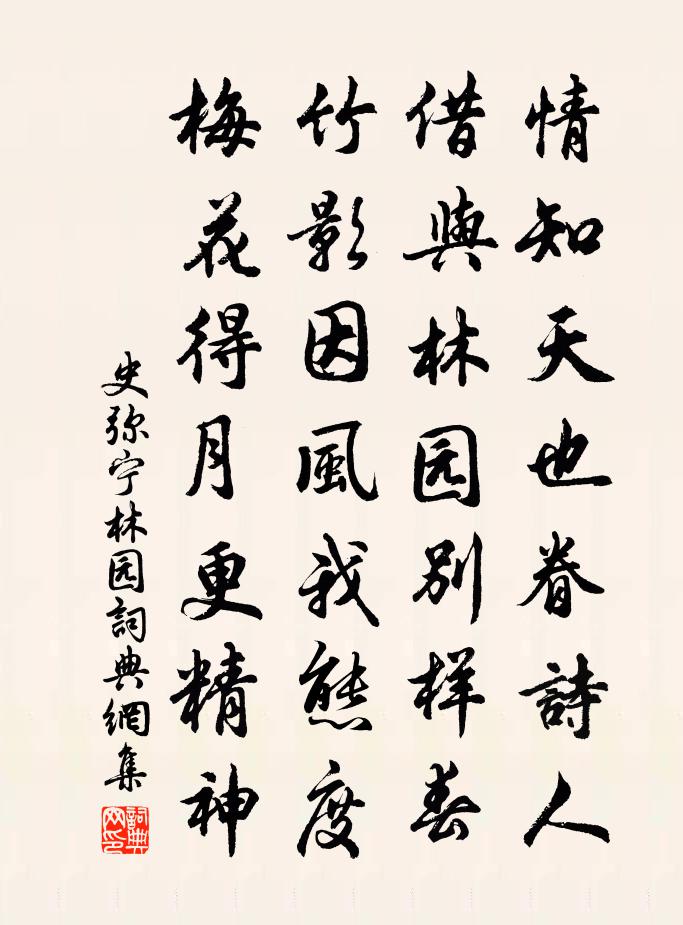 情知天也眷詩人
借與林园别样春
竹影因風我態度
梅花得月更精神
史弥宁林园詞典網集
詞典网印